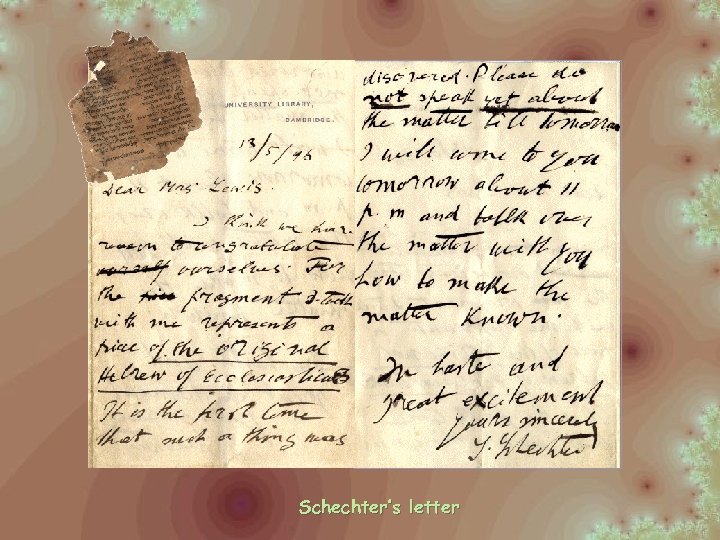 UNIVERSITY LIBRARY,
CAMBRIDGE.
13/5/96
Dear Mrs Lewis.
I think we have
reason to congratulate
ourselves. For
the fragment I took
with me represents a
piece of the original
Hebrew of Ecclesiasticus
It is the first time
that such a thing was
discovered. Please do
not speak yet about
the matter till tomorrow
I will come to you
tomorrow about 11
p.m and talk over
the matter with you
how to make the
matter known.
In haste and
great excitement
yours sincerely
S. Schechter
Schechter's letter